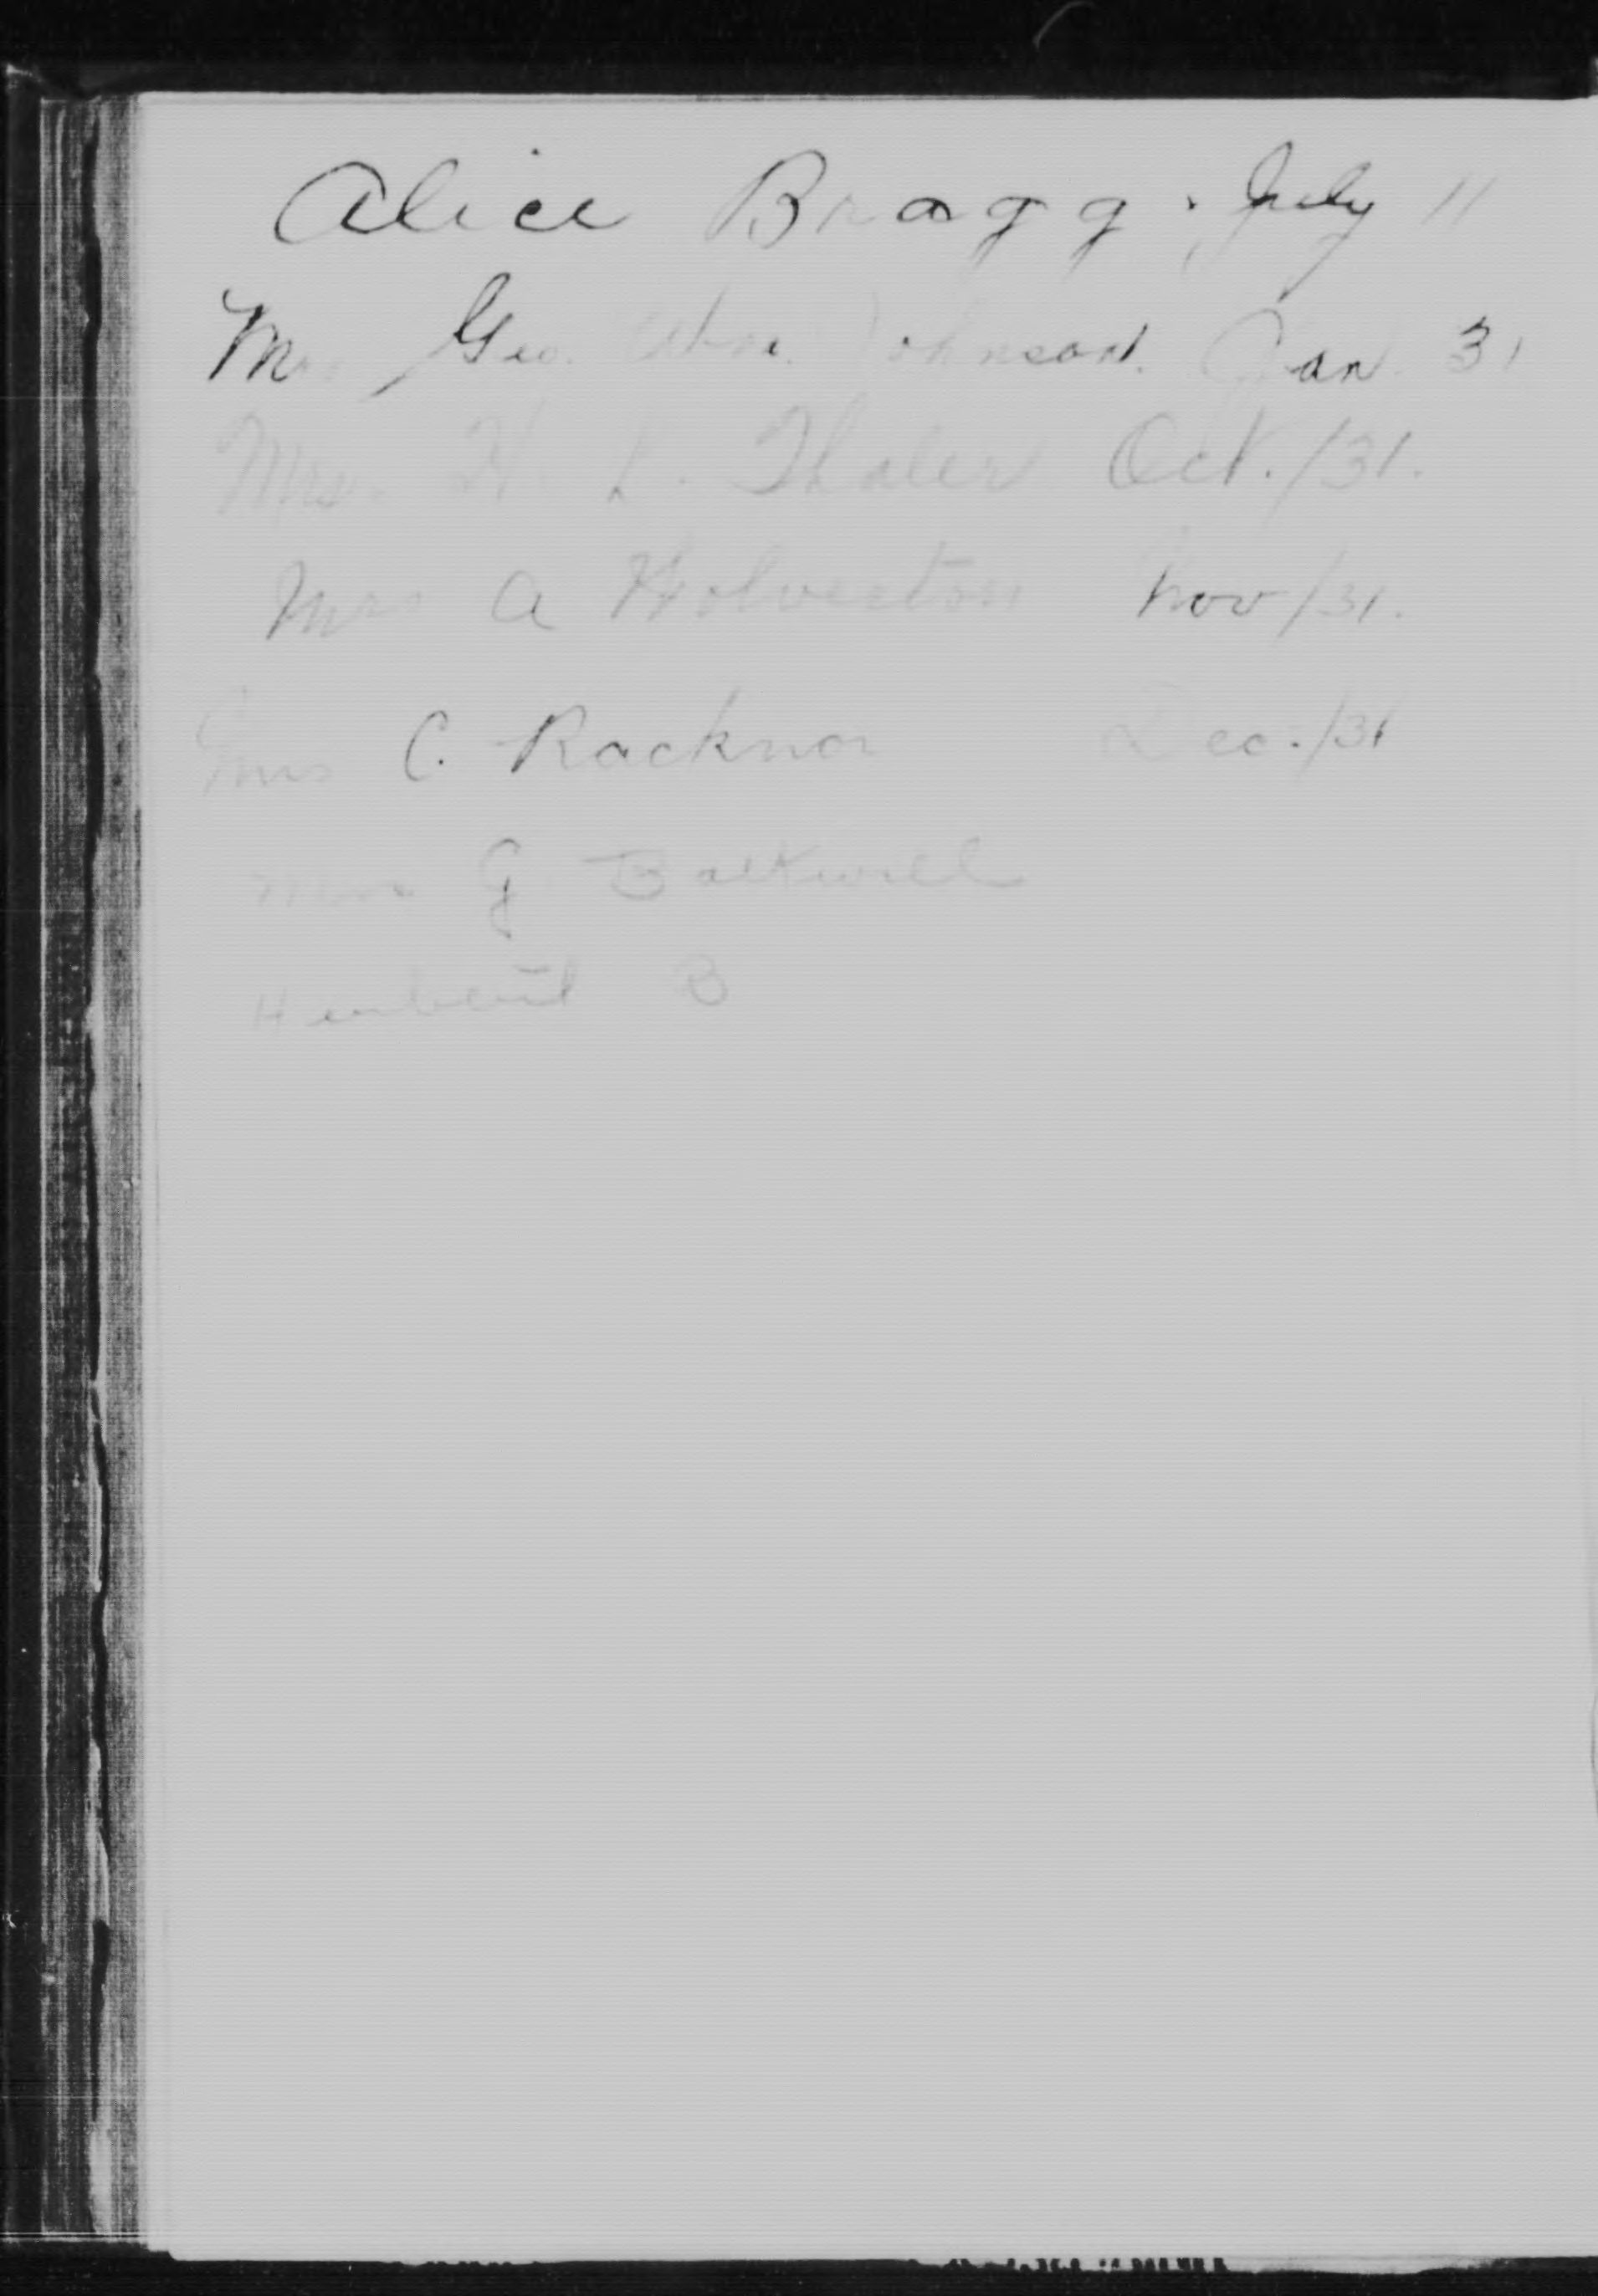 Alice Bragg. July 11
Mrs Geo. Johnson. Jan. 31
Mrs. H. L. Thaler Oct./31.
Mrs A Wolverton Nov/31.
Mrs C. Racknor Dec./31
Mrs G. Balkwill
Herbert B